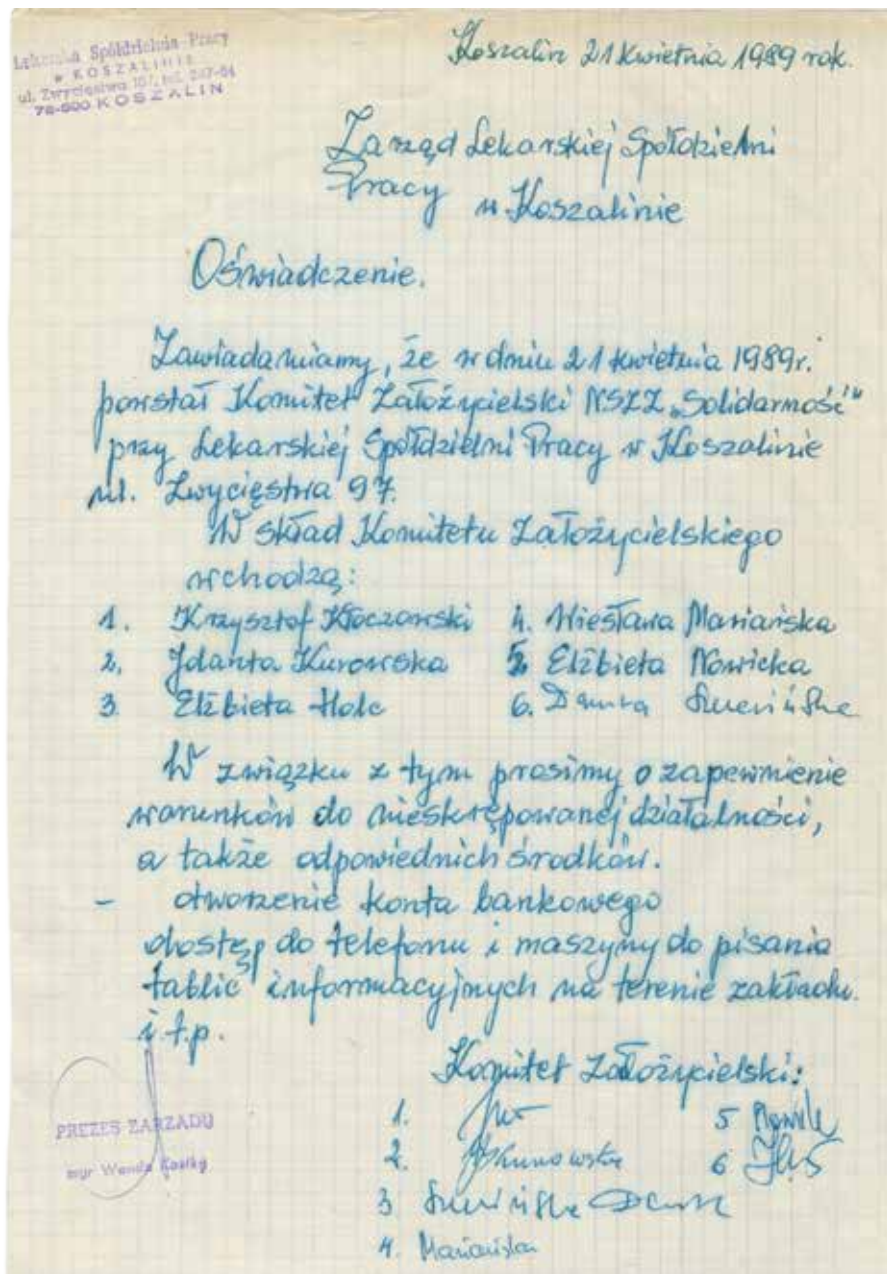 Lekarska Spółdzielnia Pracy
w KOSZALINIE
ul. Zwycięstwa tel. 247-64
75-500 KOSZALIN
Koszalin 21 kwietnia 1989 rok.
Zarząd Lekarskiej Spółdzielni
Pracy w Koszalinie
Oświadczenie.
Zawiadamiamy, że w dniu 21 kwietnia 1989r.
powstał Komitet Założycielski NSZZ „Solidarność"
przy Lekarskiej Spółdzielni Pracy w Koszalinie
ul. Zwycięstwa 97.
W skład Komitetu Założycielskiego
wchodzą:
1. Krzysztof Kłoczowski 4. Wiesława Mariańska
2. Jolanta Kurowska 5. Elżbieta Nowicka
3 Elżbieta Holc 6. Danuta
W związku z tym prosimy o zapewnienie
warunków do nieskrępowanej działalności,
a także odpowiednich środków.
- otworzenie konta bankowego
dostęp do telefonu i maszyny do pisania
tablic informacyjnych na terenie zakładu.
i t.p.
Komitet Założycielski:
1. 5
PREZES ZARZĄDU
2. 6
mgr Wanda
3
4. Mariańska